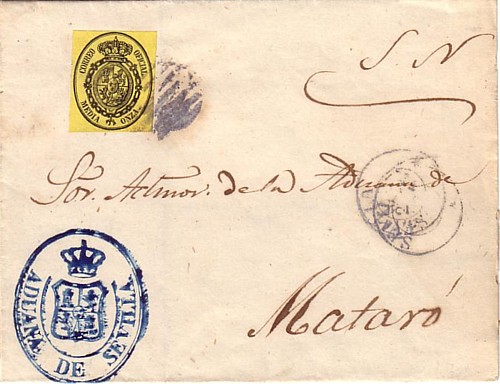 CORREO OFICIAL
MEDIA ONZA
S. N.
Sor. Admor. de la Aduana de
Mataró
SEVILLA
ADUANA DE SEVILLA